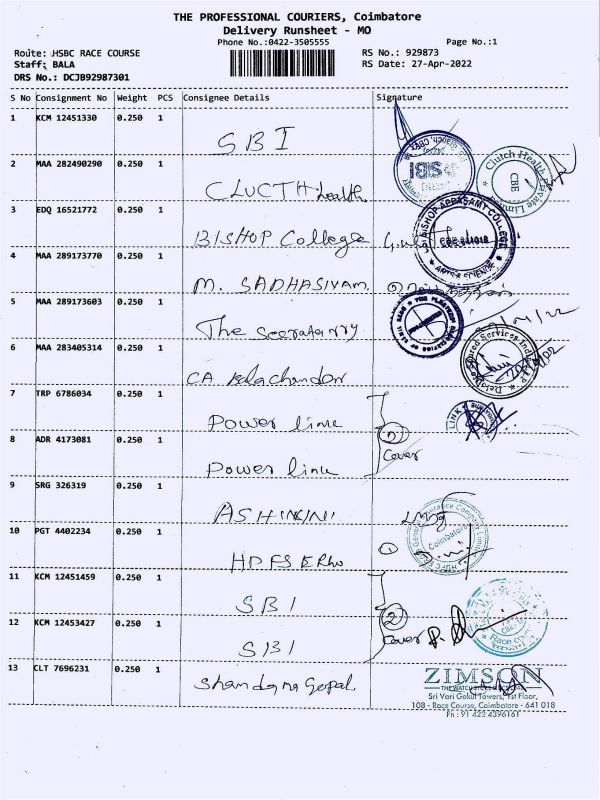 THE PROFESSIONAL COURIERS, Coimbatore
Delivery Runsheet - MO
Phone No.:0422-3505555
Page No.:1
Route: HSBC RACE COURSE
RS No.: 929873
Staff: BALA
RS Date: 27-Apr-2022
DRS No.: DCJB92987301
S No Consignment No Weight PCS Consignee Details Signature
1 KCM 12451330 0.250 1
SBI
2 MAA 282490290 0.250 1
CLUCTH health
3 EDQ 16521772 0.250 1
BISHOP College
4 MAA 289173770 0.250 1
M. SADHASIVAM.
5 MAA 289173603 0.250 1
The
6 MAA 283405314 0.250 1
CA
7 TRP 6786034 0.250 1
Power line
8 ADR 4173081 0.250 1
Power line
Cover
9 SRG 326319 0.250 1
10 PGT 4402234 0.250 1
11 KCM 12451459 0.250 1
SBI
12 KCM 12453427 0.250 1
SBI
2
Cover
13 CLT 7696231 0.250 1
SBI
Clutch Health Private Limited
CBE
BISHOP APPASAMY COLLEGE
CBE 641018
ARTS & SCIENCE
LINK
Coimbatore
Race Co
ZIMSON
Sri Vari Gokul Towers, 1st Floor,
108 - Race Course, Coimbatore - 641 018
Ph : 91 422 4396161